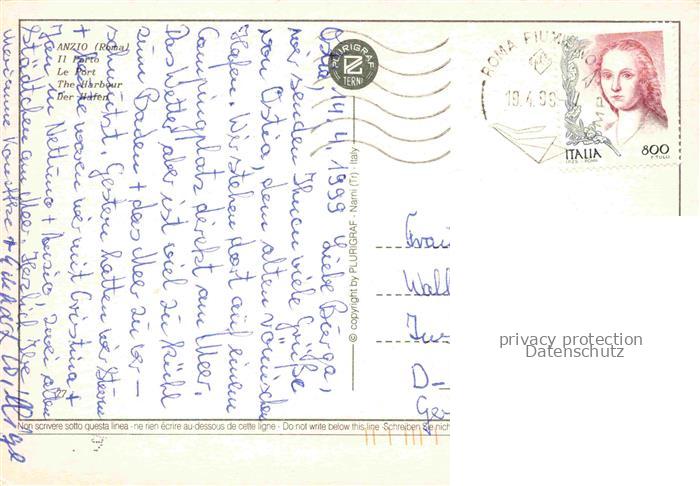 ANZIO (Roma)
Il Porto
Le Port
The Harbour
Der Hafen
PLURIGRAF
TERNI
© copyright by PLURIGRAF - Narni (Tr) - Italy
ROMA FIUMICINO
19.4.99
ITALIA
800
Ostia, 14.4.1999 Liebe Burga,
wir senden Ihnen viele Grüße
von Ostia, dem alten römischen
Hafen. Wir stehen dort auf einem
Campingplatz direkt am Meer.
Das Wetter aber ist viel zu kühl
zum Baden + das Meer zu ver-
schmutzt. Gestern hatten wir Sturm
+ heute waren wir mit Cristina +
in Nettuno + Anzio, zwei alten
Städtchen am Meer. Herzlich Ihre
Marianne
Frau
Wall
D-
Ger
27
Non scrivere sotto questa linea - ne rien écrire au-dessous de cette ligne - Do not write below this line - Schreiben Sie nich
privacy protection
Datenschutz